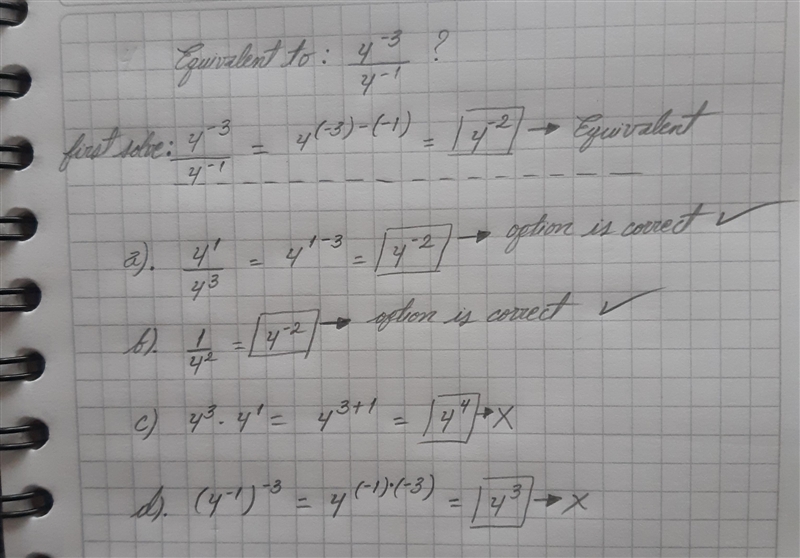 Equivalent to: 4⁻³/4⁻¹ ?
first solve: 4⁻³/4⁻¹ = 4⁽⁻³⁾⁻⁽⁻¹⁾ = 4⁻² → Equivalent
a). 4¹/4³ = 4¹⁻³ = 4⁻² → option is correct ✓
b). 1/4² = 4⁻² → option is correct ✓
c) 4³ · 4¹ = 4³⁺¹ = 4⁴ → X
d). (4⁻¹)⁻³ = 4⁽⁻¹⁾·⁽⁻³⁾ = 4³ → X